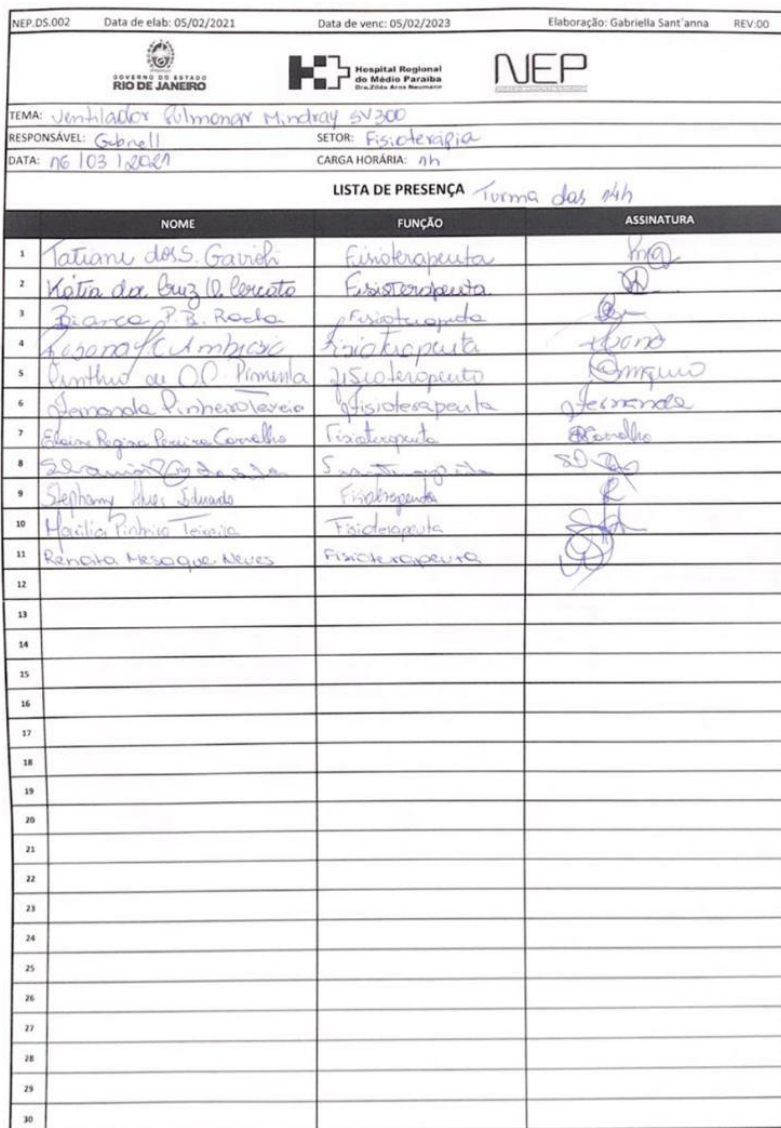 NEP.DS.002 Data de elab: 05/02/2021 Data de venc: 05/02/2023 Elaboração: Gabriella Sant´anna REV:00
GOVERNO DO ESTADO
RIO DE JANEIRO
Hospital Regional
do Médio Paraíba
Dra.Zilda Arns Neumann
NEP
TEMA: Ventilador Pulmonar Mindray SV300
RESPONSÁVEL: Gabriell SETOR: Fisioterapia
DATA: 16/03/2021 CARGA HORÁRIA: 1h
LISTA DE PRESENÇA Turma das 14h
NOME FUNÇÃO ASSINATURA
1 Tatiane dos S. Fisioterapeuta
2 Kátia da Cruz Fisioterapeuta
3 Bianca P. B. Rocha Fisioterapeuta
4 Fisioterapeuta
5 Pimenta Fisioterapeuta
6 Fernanda Pinheiro Fisioterapeuta Fernanda
7 Elaine Regina Pereira Carvalho Fisioterapeuta
8
9 Stephany Alves Eduardo Fisioterapeuta
10 Marilia Pinheiro Teixeira Fisioterapeuta
11 Renata Mesaque Neves Fisioterapeuta
12
13
14
15
16
17
18
19
20
21
22
23
24
25
26
27
28
29
30